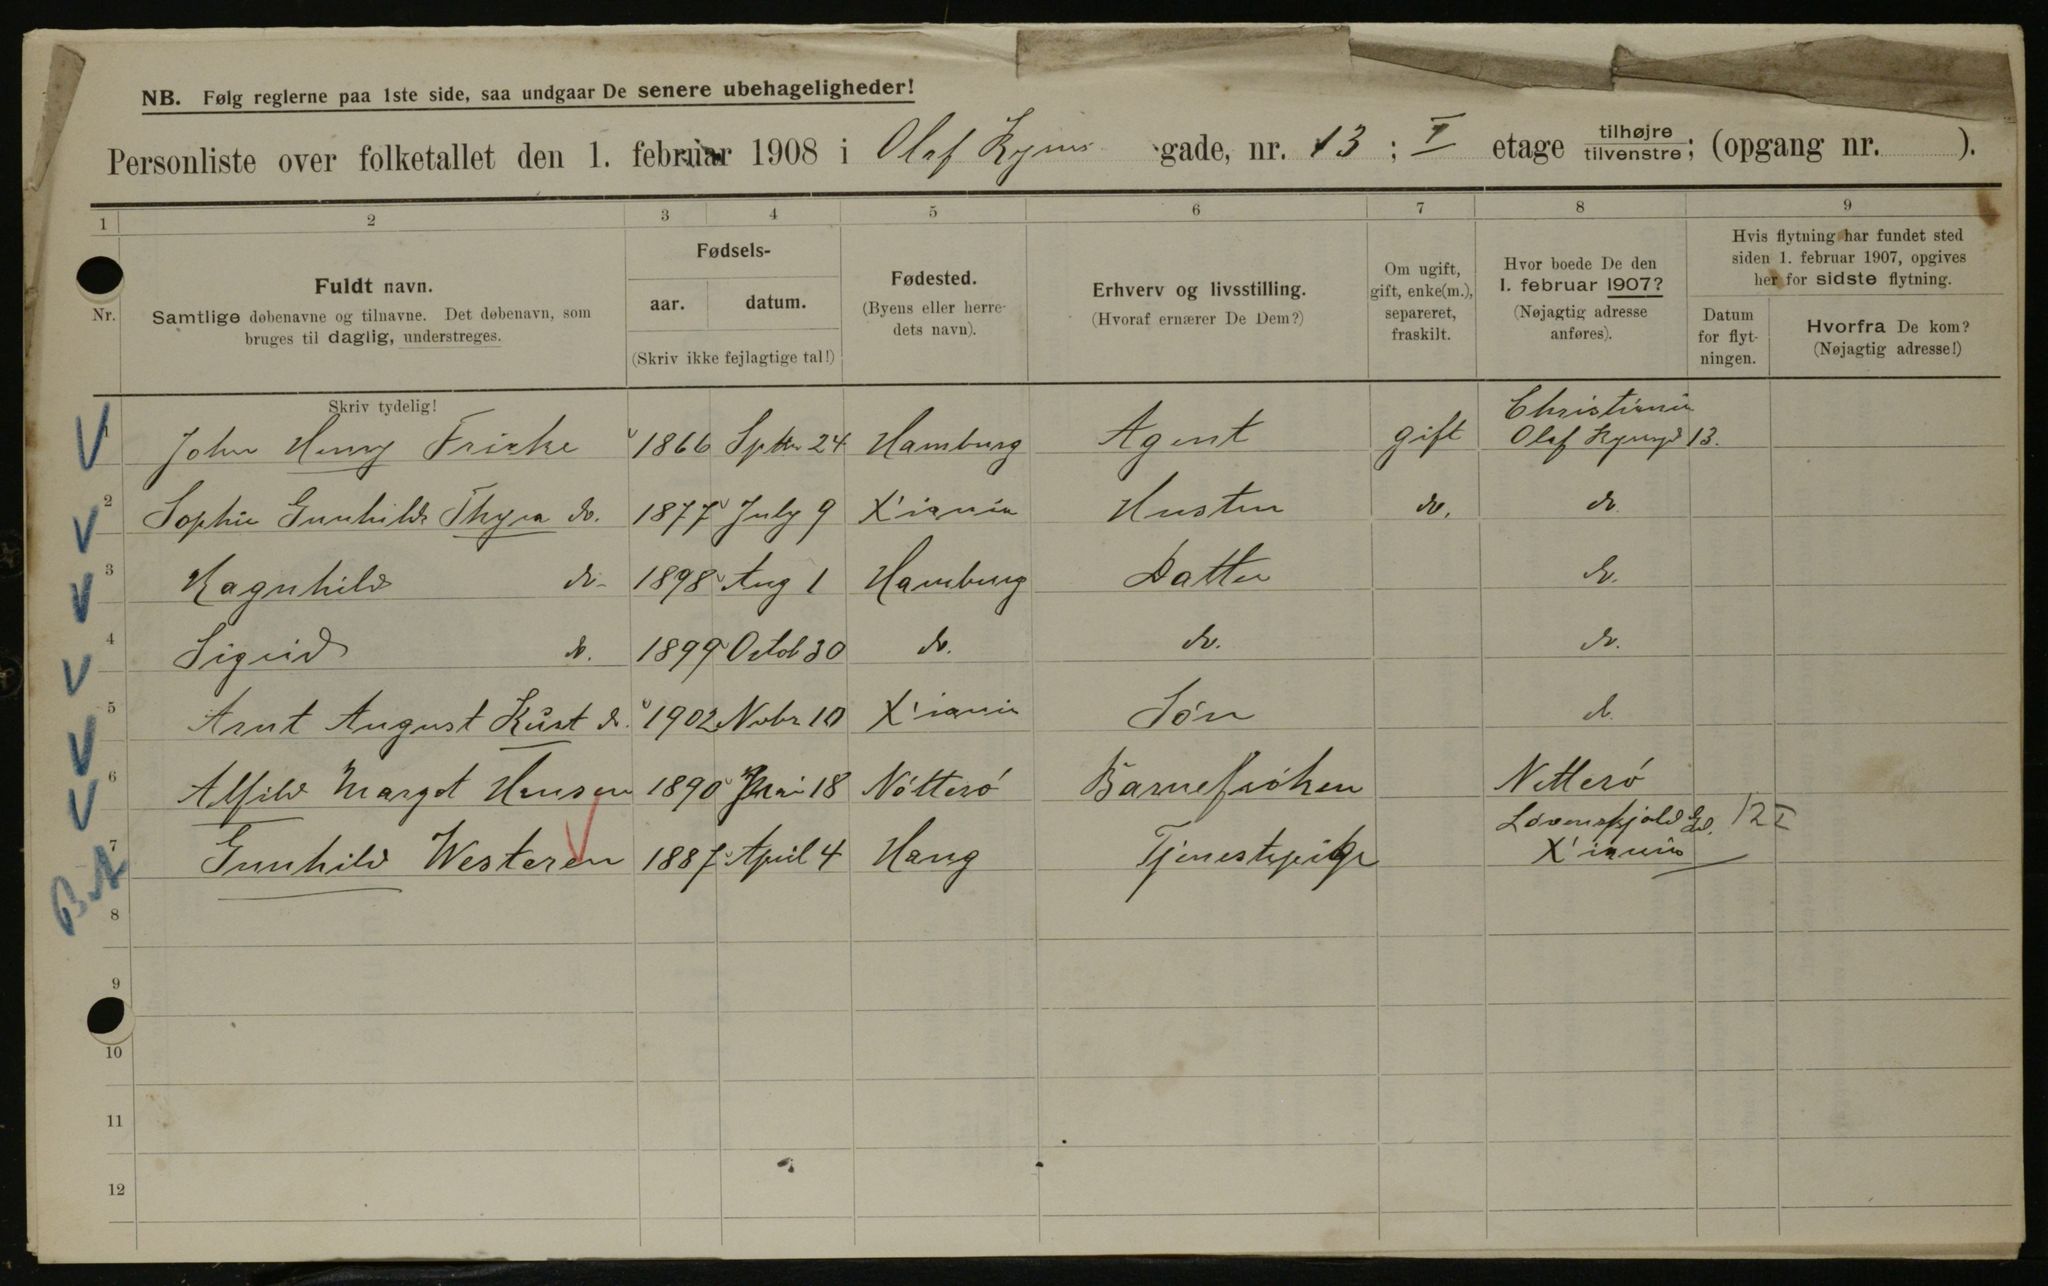 NB. Følg reglerne paa 1ste side, saa undgaar De senere ubehageligheder!
Personliste over folketallet den 1. februar 1908 i Olaf Ryes gade, nr. 13; I etage tilhøjre tilvenstre; (opgang nr. ).
1 2 3 4 5 6 7 8 9
Nr.
Fuldt navn.
Samtlige døbenavne og tilnavne. Det døbenavn, som
bruges til daglig, understreges.
Skriv tydelig!
Fødsels-
aar. datum.
(Skriv ikke fejlagtige tal!)
Fødested.
(Byens eller herre-
dets navn).
Erhverv og livsstilling.
(Hvoraf ernærer De Dem?)
Om ugift,
gift, enke(m.),
separeret,
fraskilt.
Hvor boede De den
1. februar 1907?
(Nøjagtig adresse
anføres).
Hvis flytning har fundet sted
siden 1. februar 1907, opgives
her for sidste flytning.
Datum
for flyt-
ningen.
Hvorfra De kom?
(Nøjagtig adresse!)
Christiania
1 John Henry Fricke 1866 Septbr 24 Hamburg Agent gift Olaf Ryesgd 13.
2 Sophie Gunhilde Thyra do. 1877 July 9 X'iania Hustru do. do.
3 Ragnhild do. 1898 Aug 1 Hamburg Datter do.
4 Sigrid do. 1899 Octob 30 do. do. do.
5 Arnt August Kurt do. 1902 Nvbr 10 X'iania Søn do.
6 Alfild Margot Hansen 1890 Mai 18 Nötterö Barnefröken Nötterö
Løvenskjold Gd. 12 I
7 Gunhild Westeren 1887 April 4 Haug Tjenestepige X'iania
8
9
10
11
12